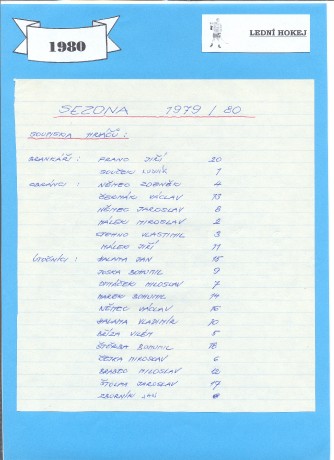 1980
LEDNÍ HOKEJ
SEZONA 1979 / 80
SOUPISKA HRÁČŮ:
BRANKÁŘI: FRANC JIŘÍ 20
SOUČEK LUDVÍK 1
OBRÁNCI: NĚMEC ZDENĚK 4
ČERMÁK VÁCLAV 13
NĚMEC JAROSLAV 8
MÁLEK MIROSLAV 2
VLASTIMIL 3
MÁLEK JIŘÍ 11
ÚTOČNÍCI: HALAMA JAN 15
JUSKA BOHUMIL 9
MILOSLAV 7
MAREK BOHUMIL 14
NĚMEC VÁCLAV 16
HALAMA VLADIMÍR 10
BŘÍZA VILÉM 5
ŠTĚRBA BOHUMIL 18
ČEJKA MIROSLAV 6
BRABEC MILOSLAV 12
ŠTOLBA JAROSLAV 17
ZBORNÍK JIŘÍ